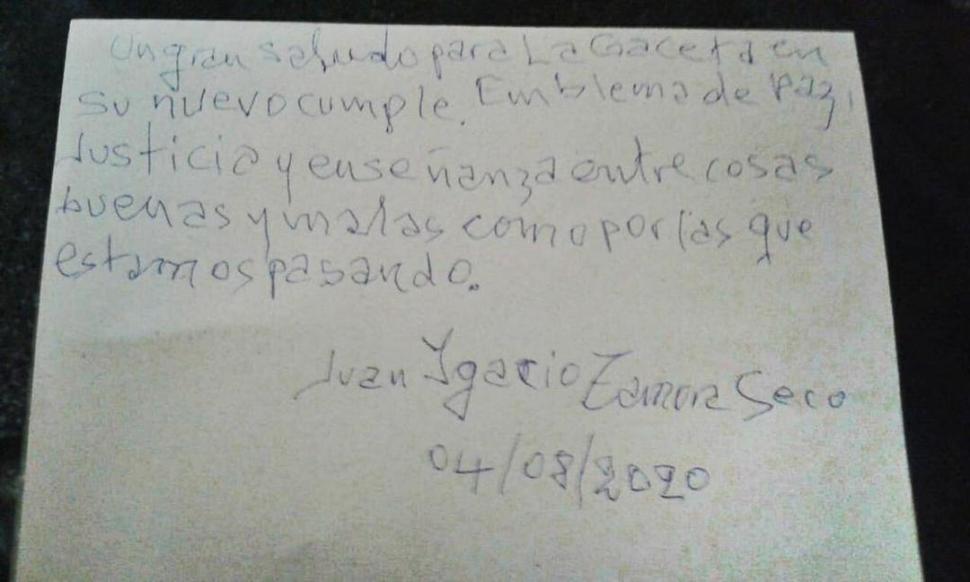 Un gran saludo para La Gaceta en
su nuevo cumple. Emblema de paz,
Justicia y enseñanza entre cosas
buenas y malas como por las que
estamos pasando.
Juan Ygacio Zamora Seco
04/08/2020